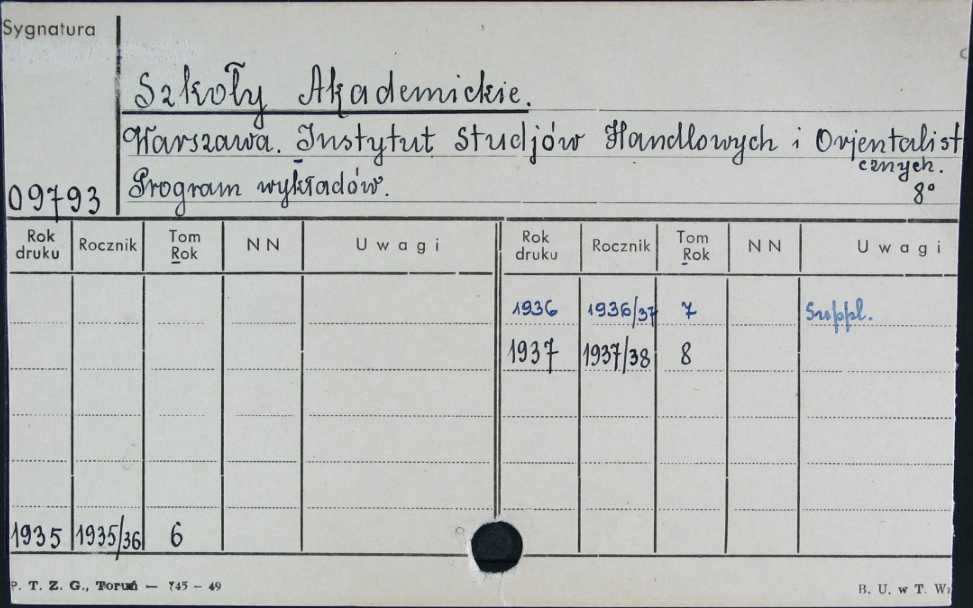 Sygnatura
Szkoły Akademickie.
Warszawa. Instytut Studjów Handlowych i Orjentalist
cznych.
09793 Program wykładów. 8°
Rok druku Rocznik Tom Rok NN Uwagi Rok druku Rocznik Tom Rok NN Uwagi
1936 1936/37 7 Suppl.
1937 1937/38 8
1935 1935/36 6
P. T. Z. G., Toruń — 745 - 49 B. U. w T.